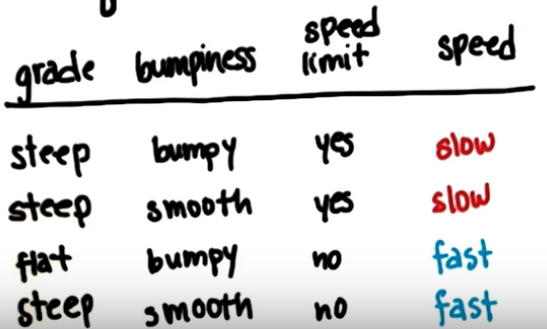 grade bumpiness speed limit speed
steep bumpy yes slow
steep smooth yes slow
flat bumpy no fast
steep smooth no fast